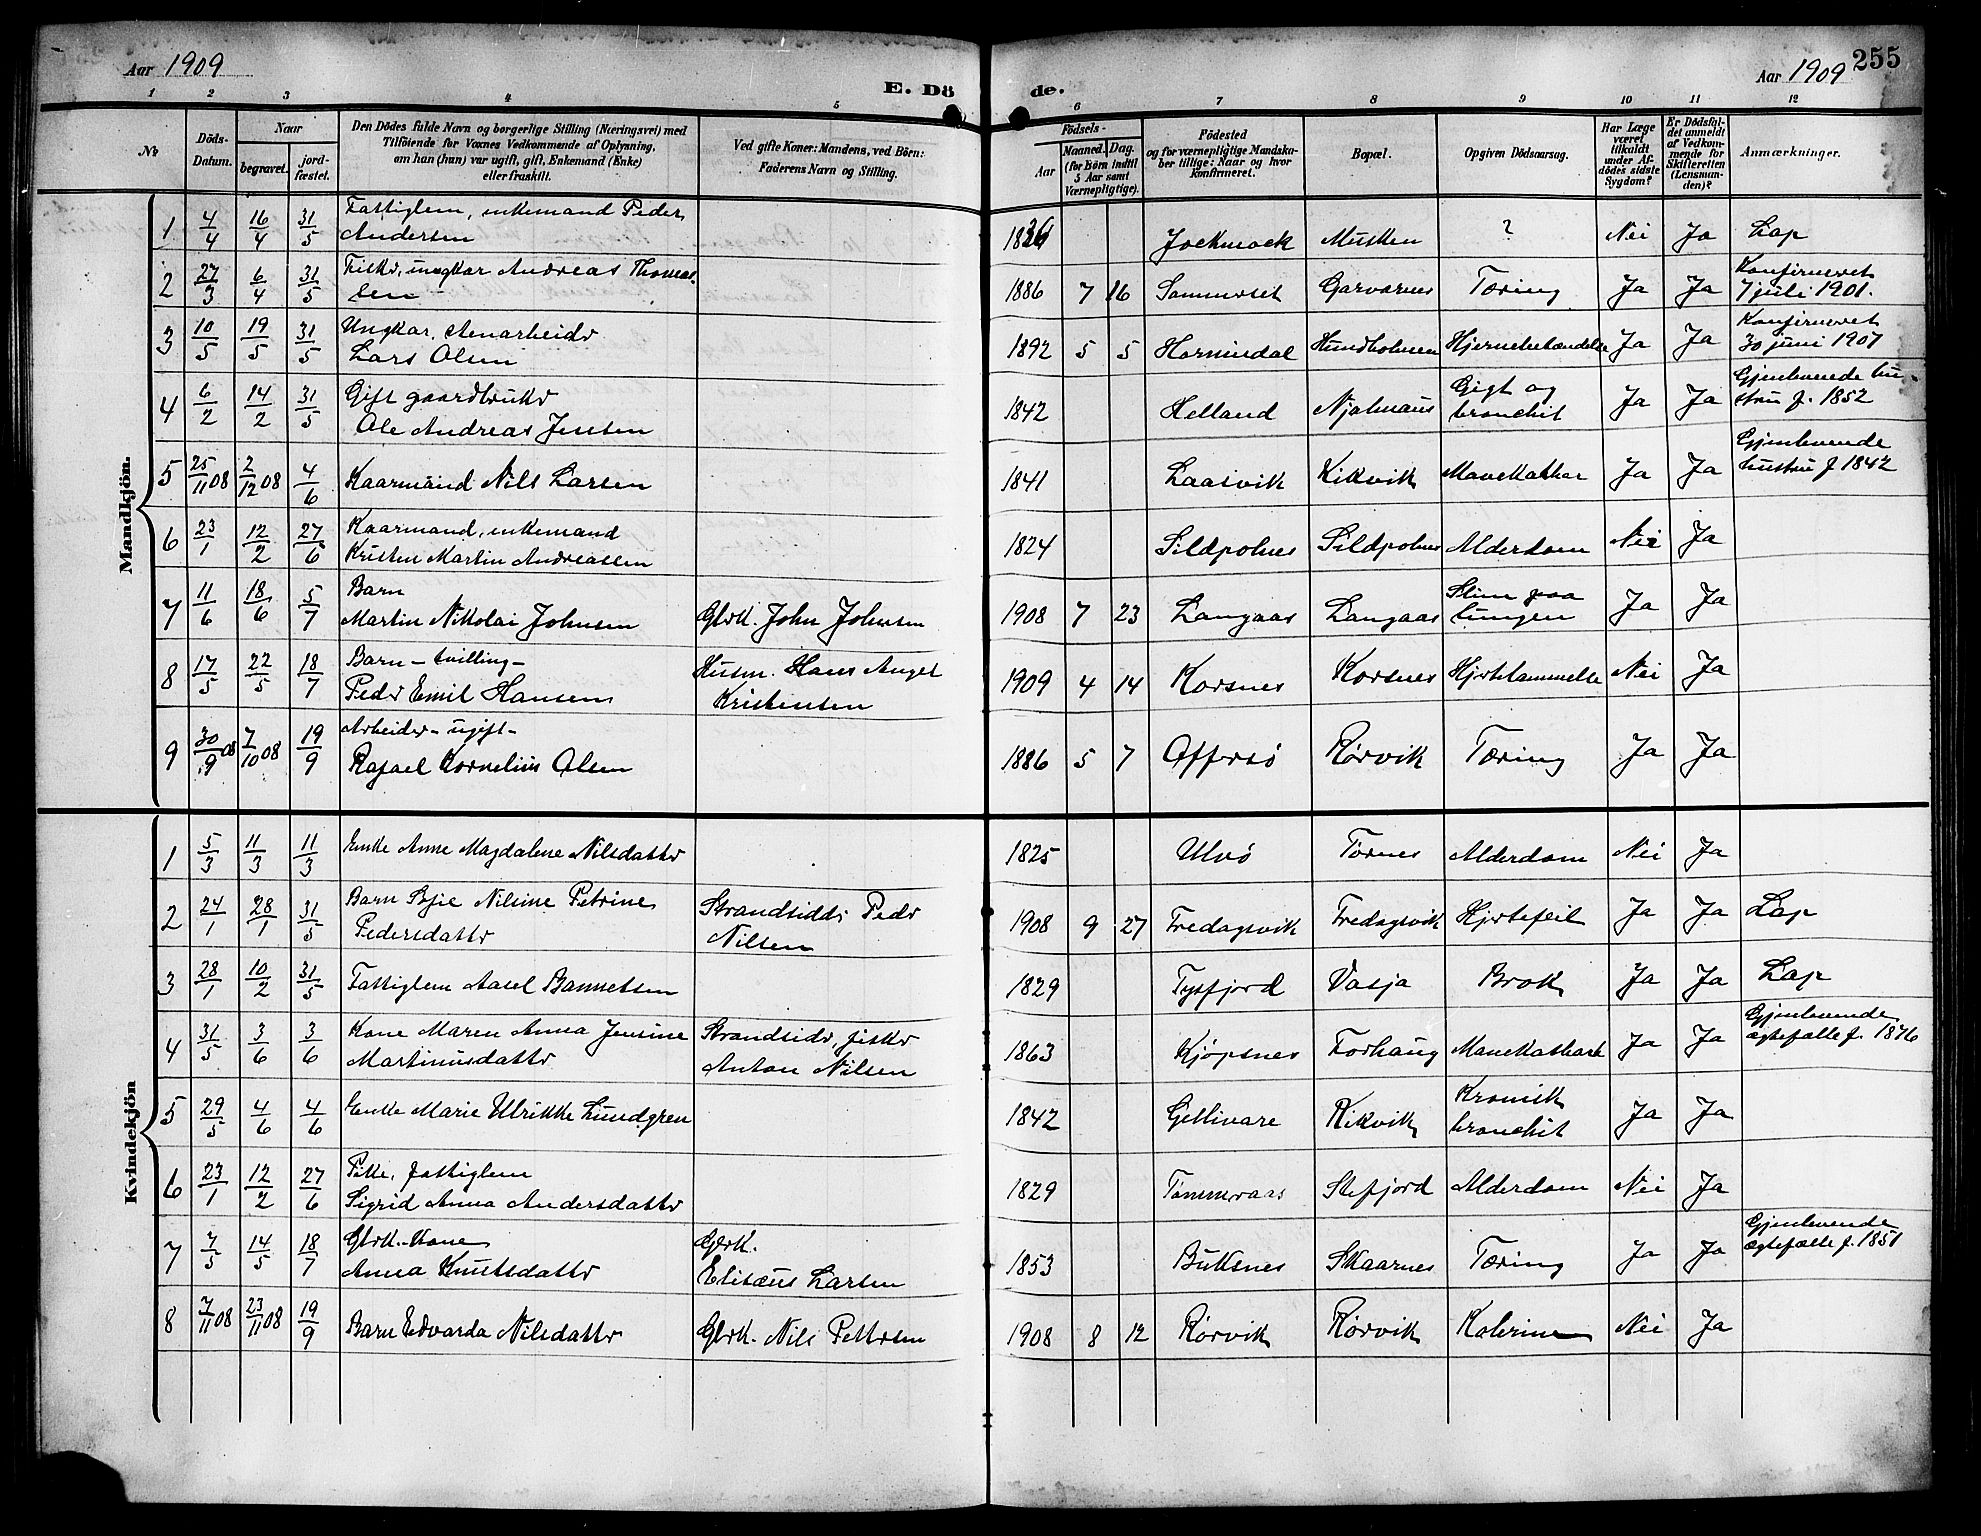 Aar 1909
E. Dö de.
Aar 1909
255
1 2 3 4 5 6 7 8 9 10 11 12
No
Döds-Datum.
Naar
begravet.
jord-fæstet.
Den Dödes fulde Navn og borgerlige Stilling (Næringsvei) med
Tilföiende for Voxnes Vedkommende af Oplysning,
om han (hun) var ugift, gift, Enkemand (Enke)
eller fraskilt.
Ved gifte Koner: Mandens, ved Börn:
Faderens Navn og Stilling.
Födsels-
Aar
Maaned. Dag.
(for Börn indtil
5 Aar samt
Værnepligtige).
Födested
og for værnepligtige Mandska-
ber tillige: Naar og hvor
konfirmeret.
Bopæl.
Opgiven Dödsaarsag.
Har Læge
været
tilkaldt
under Af-
dödes sidste
Sygdom?
Er Dödsfal-
det anmeldt
af Vedkom-
mende for
Skifteretten
(Lensman-
den)?
Anmærkninger.
Mandkjön.
1 4/4 16/4 31/5 Fattiglem, enkemand Peder
Andersen 1836 Jockmock Musken ? Nei Ja Lap
2 27/3 6/4 31/5 Fiskr, ungkar Andreas Thomas-
sen 1886 7 16 Sommerset Garvarnes Tæring Ja Ja Konfirmeret
7 juli 1901.
3 10/5 19/5 31/5 Ungkar, stenarbeidr
Lars Olsen 1892 5 5 Hornindal Hundholmen Hjernebetændelse Ja Ja Konfirmeret
30 juni 1907
4 6/2 14/2 31/5 Gift gaardbrukr
Ole Andreas Jensen 1842 Helland Njalmaus Gigt og
bronchit Ja Ja Gjenlevende hu-
stru f. 1852
5 25/11 08 2/12 08 4/6 Kaarmand Nils Larsen 1841 Laasvik Kikvik Mavekathar Ja Ja Gjenlevende
hustru f 1842
6 23/1 12/2 27/6 Kaarmand, enkemand
Kristen Martin Andreassen 1824 Sildpolnes Sildpolnes Alderdom Nei Ja
7 11/6 18/6 5/7 Barn
Martin Nikolai Johnsen Gbrk. John Johnsen 1908 7 23 Langaas Langaas Slim paa
lungen Ja Ja
8 17/5 22/5 18/7 Barn - tvilling -
Pedr Emil Hansen Husm. Hans Angel
Kristensen 1909 4 14 Korsnes Korsnes Hjertelammelse Nei Ja
9 30/9 08 7/10 08 19/9 Arbeider - ugift -
Rafael Kornelius Olsen 1886 5 7 Offersö Rørvik Tæring Ja Ja
Kvindekjön
1 5/3 11/3 11/3 Enke Anne Magdalene Nilsdattr 1825 Ulvö Tornes Alderdom Nei Ja
2 24/1 28/1 31/5 Barn Nilsine Petrine
Pedersdattr Strandsiddr Pedr
Nilsen 1908 9 27 Fredagsvik Fredagsvik Hjertefeil Ja Ja Lap
3 28/1 10/2 31/5 Fattiglem Aasel Bannetsen 1829 Tysfjord Vasja Brok Ja Ja Lap
4 31/5 3/6 3/6 Kone Maren Anna Jensine
Martinusdattr Strandsidr, fiskr
Anton Nilsen 1863 Kjøpsnes Forhaug Mavekathar Ja Ja Gjenlevende
ægtefælle f. 1876
5 29/5 4/6 4/6 Enke Marie Ulrikke Lundgren 1842 Gellivare Kikvik Kronisk
bronchit Ja Ja
6 23/1 12/2 27/6 Pike, fattiglem
Sigrid Anna Andersdattr 1829 Tømmeraas Stefjord Alderdom Nei Ja
7 7/5 14/5 18/7 Gbrk.-kone
Anna Knutsdattr Gbrk.
Elisæus Larsen 1853 Buksnes Skaarnes Tæring Ja Ja Gjenlevende
ægtefælle f. 1851
8 7/11 08 23/11 08 19/9 Barn Edvarda Nilsdattr Gbrk. Nils Pettersen 1908 8 12 Rørvik Rørvik Kolerine Nei Ja